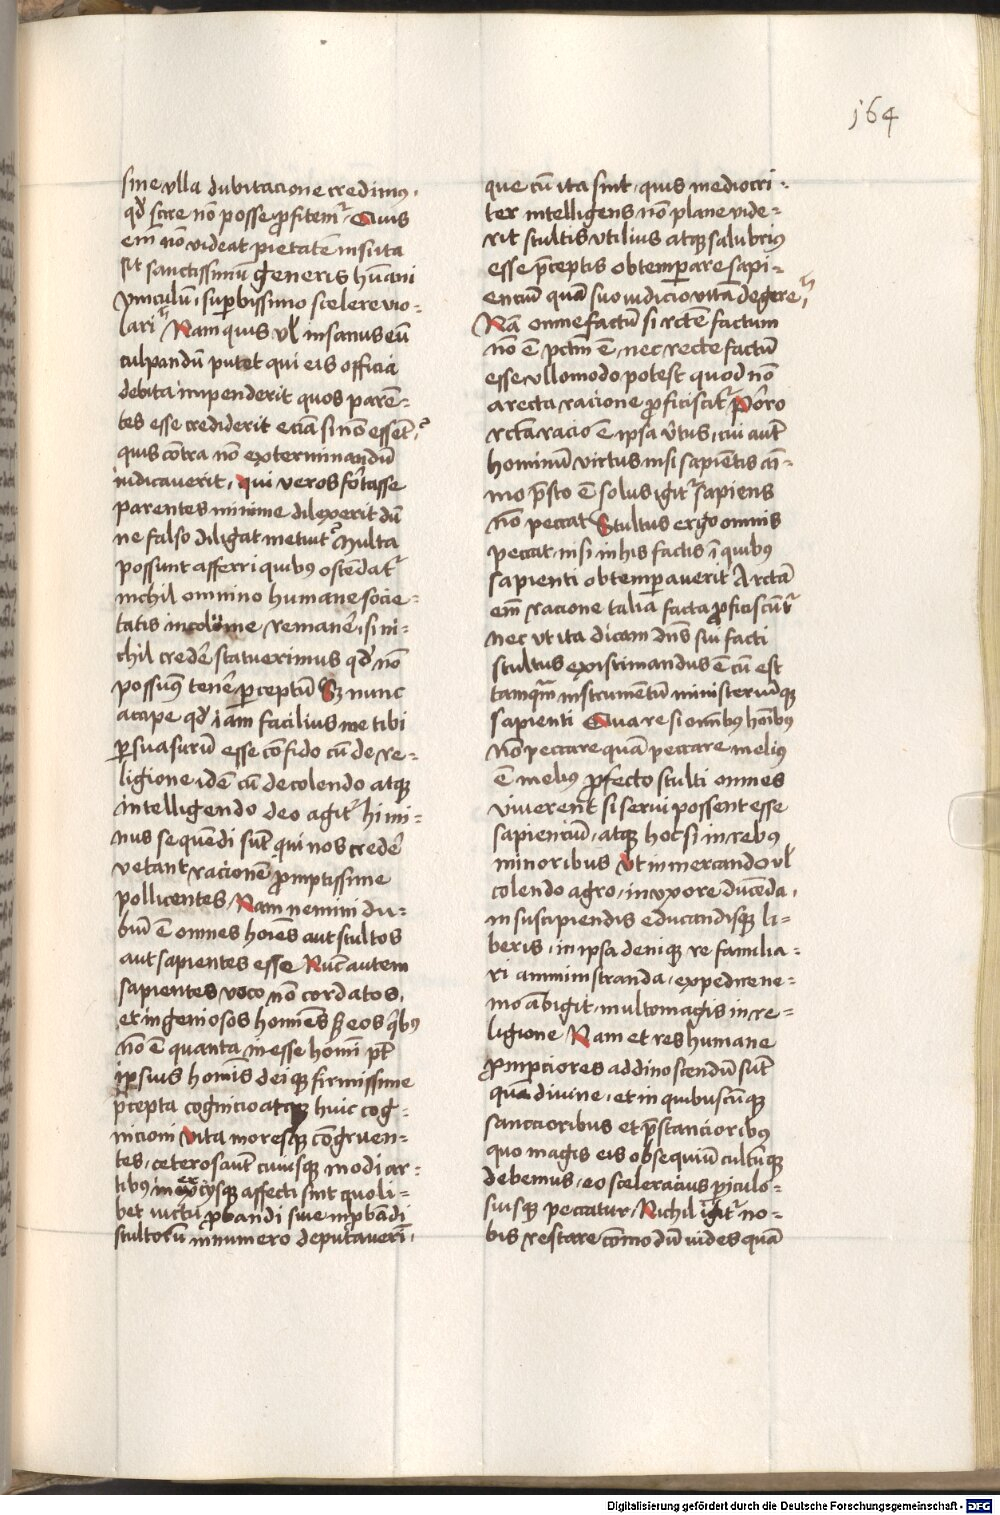 164
sine ulla dubitacione credimus,
qd̄ scire nō posse ꝓfitemr̃ Quis
em̄ nō videat pietatē nisi ita
sit sanctissimū generis hūani
vinculum, suꝑbissimo scelere vio-
lari Nam quis vl̄ insanus eū
culpandū putet qui eis officia
debita impenderit quos parē-
tes esse crediderit eciā si nō essēt?
quis cōtra nō exterminandū
iudicaverit, qui veros fortasse
parentes minime dilexerit dū
ne falso diligat metuit? Multa
possunt afferri quibꝰ ostēdatr̃
nichil omnino humane socie-
tatis incolōme remanē, si ni-
chil credē statuerimus qd̄ nō
possumꝰ tenē ꝑceptū Sꝫ nunc
accipe qd̄ iam facilius me tibi
ꝑsuasurū esse cōfido cū de re-
ligione idē cū de colendo atqꝫ
intelligendo deo agitr̃ hi mi-
nus sequēdi sūt qui nos credē
vetant racionē ꝓmptissime
pollicentes, Nam nemini du-
biū ē omnes hoīes aut stultos
aut sapientes esse Nūc autem
sapientes voco nō cordatos,
et ingeniosos homīes sꝫ eos qͥbꝰ
nō ē quanta inesse homī pt̄
ipsius homīs deiqꝫ firmissime
ꝑcepta cognicio atqꝫ huic cog-
nicioni vita moresqꝫ cōgruen-
tes, ceteros aūt cuiusqꝫ modi ar-
tibꝰ inercijsqꝫ affecti sint quoli-
bet victu ꝓbandi sive inꝓbādi
stultorū in numero deputaverī,
que cū ita sint, quis mediocri-
ter intelligens nō plane vide-
rit stultis utilius atqꝫ salubriꝰ
esse p̄ceptis obtemꝑare sapi-
enciū quā suo iudicio vitā degere?
Nā omne factū si rcte factum
nō ē pctm̄ ē, nec recte factū
esse ullo modo potest quod nō
a recta racione ꝓficiscitr̃ Porro
rcta racio ē ipsa v̄tus, cui aūt
hominū virtus nisi sapiētis aī-
mo p̄sto ē solus igitr̃ sapiens
nō peccat Stultus ergo omnis
peccat, nisi in his factis ī quibꝰ
sapienti obtemꝑaverit A rcta
em̄ racione talia facta ꝓficiscūtr̃
nec ut ita dicam dn̄s sui facti
stultus existimandus ē cū est
tamqm̄ instrumētū ministeriūqꝫ
sapienti Quare si omībꝰ homībꝰ
nō peccare quā peccare meliꝰ
ē melius ꝓfecto stulti omnes
viverent si servi possent esse
sapienciū, atqꝫ hoc si in rebꝰ
minoribus Ut in mercando vl̄
colendo agro, in uxore ducēda,
in suscipiendis educandisqꝫ li-
beris, in ipsa deniqꝫ re familia-
ri amministranda, expedire ne-
mo ābigit, multo magis in re-
ligione Nam et res humane
ꝓmpciores ad dinoscendū sūt
quā divine, et in quibuscūqꝫ
sanccioribus et p̄stancioribꝰ
quo magis eis obsequiū cultūqꝫ
debemus, eo sceleracius ꝑiculo-
siusqꝫ peccatur, Nichil igitr̃ no-
bis restare cōmodū vides quā
Digitalisierung gefördert durch die Deutsche Forschungsgemeinschaft - DFG